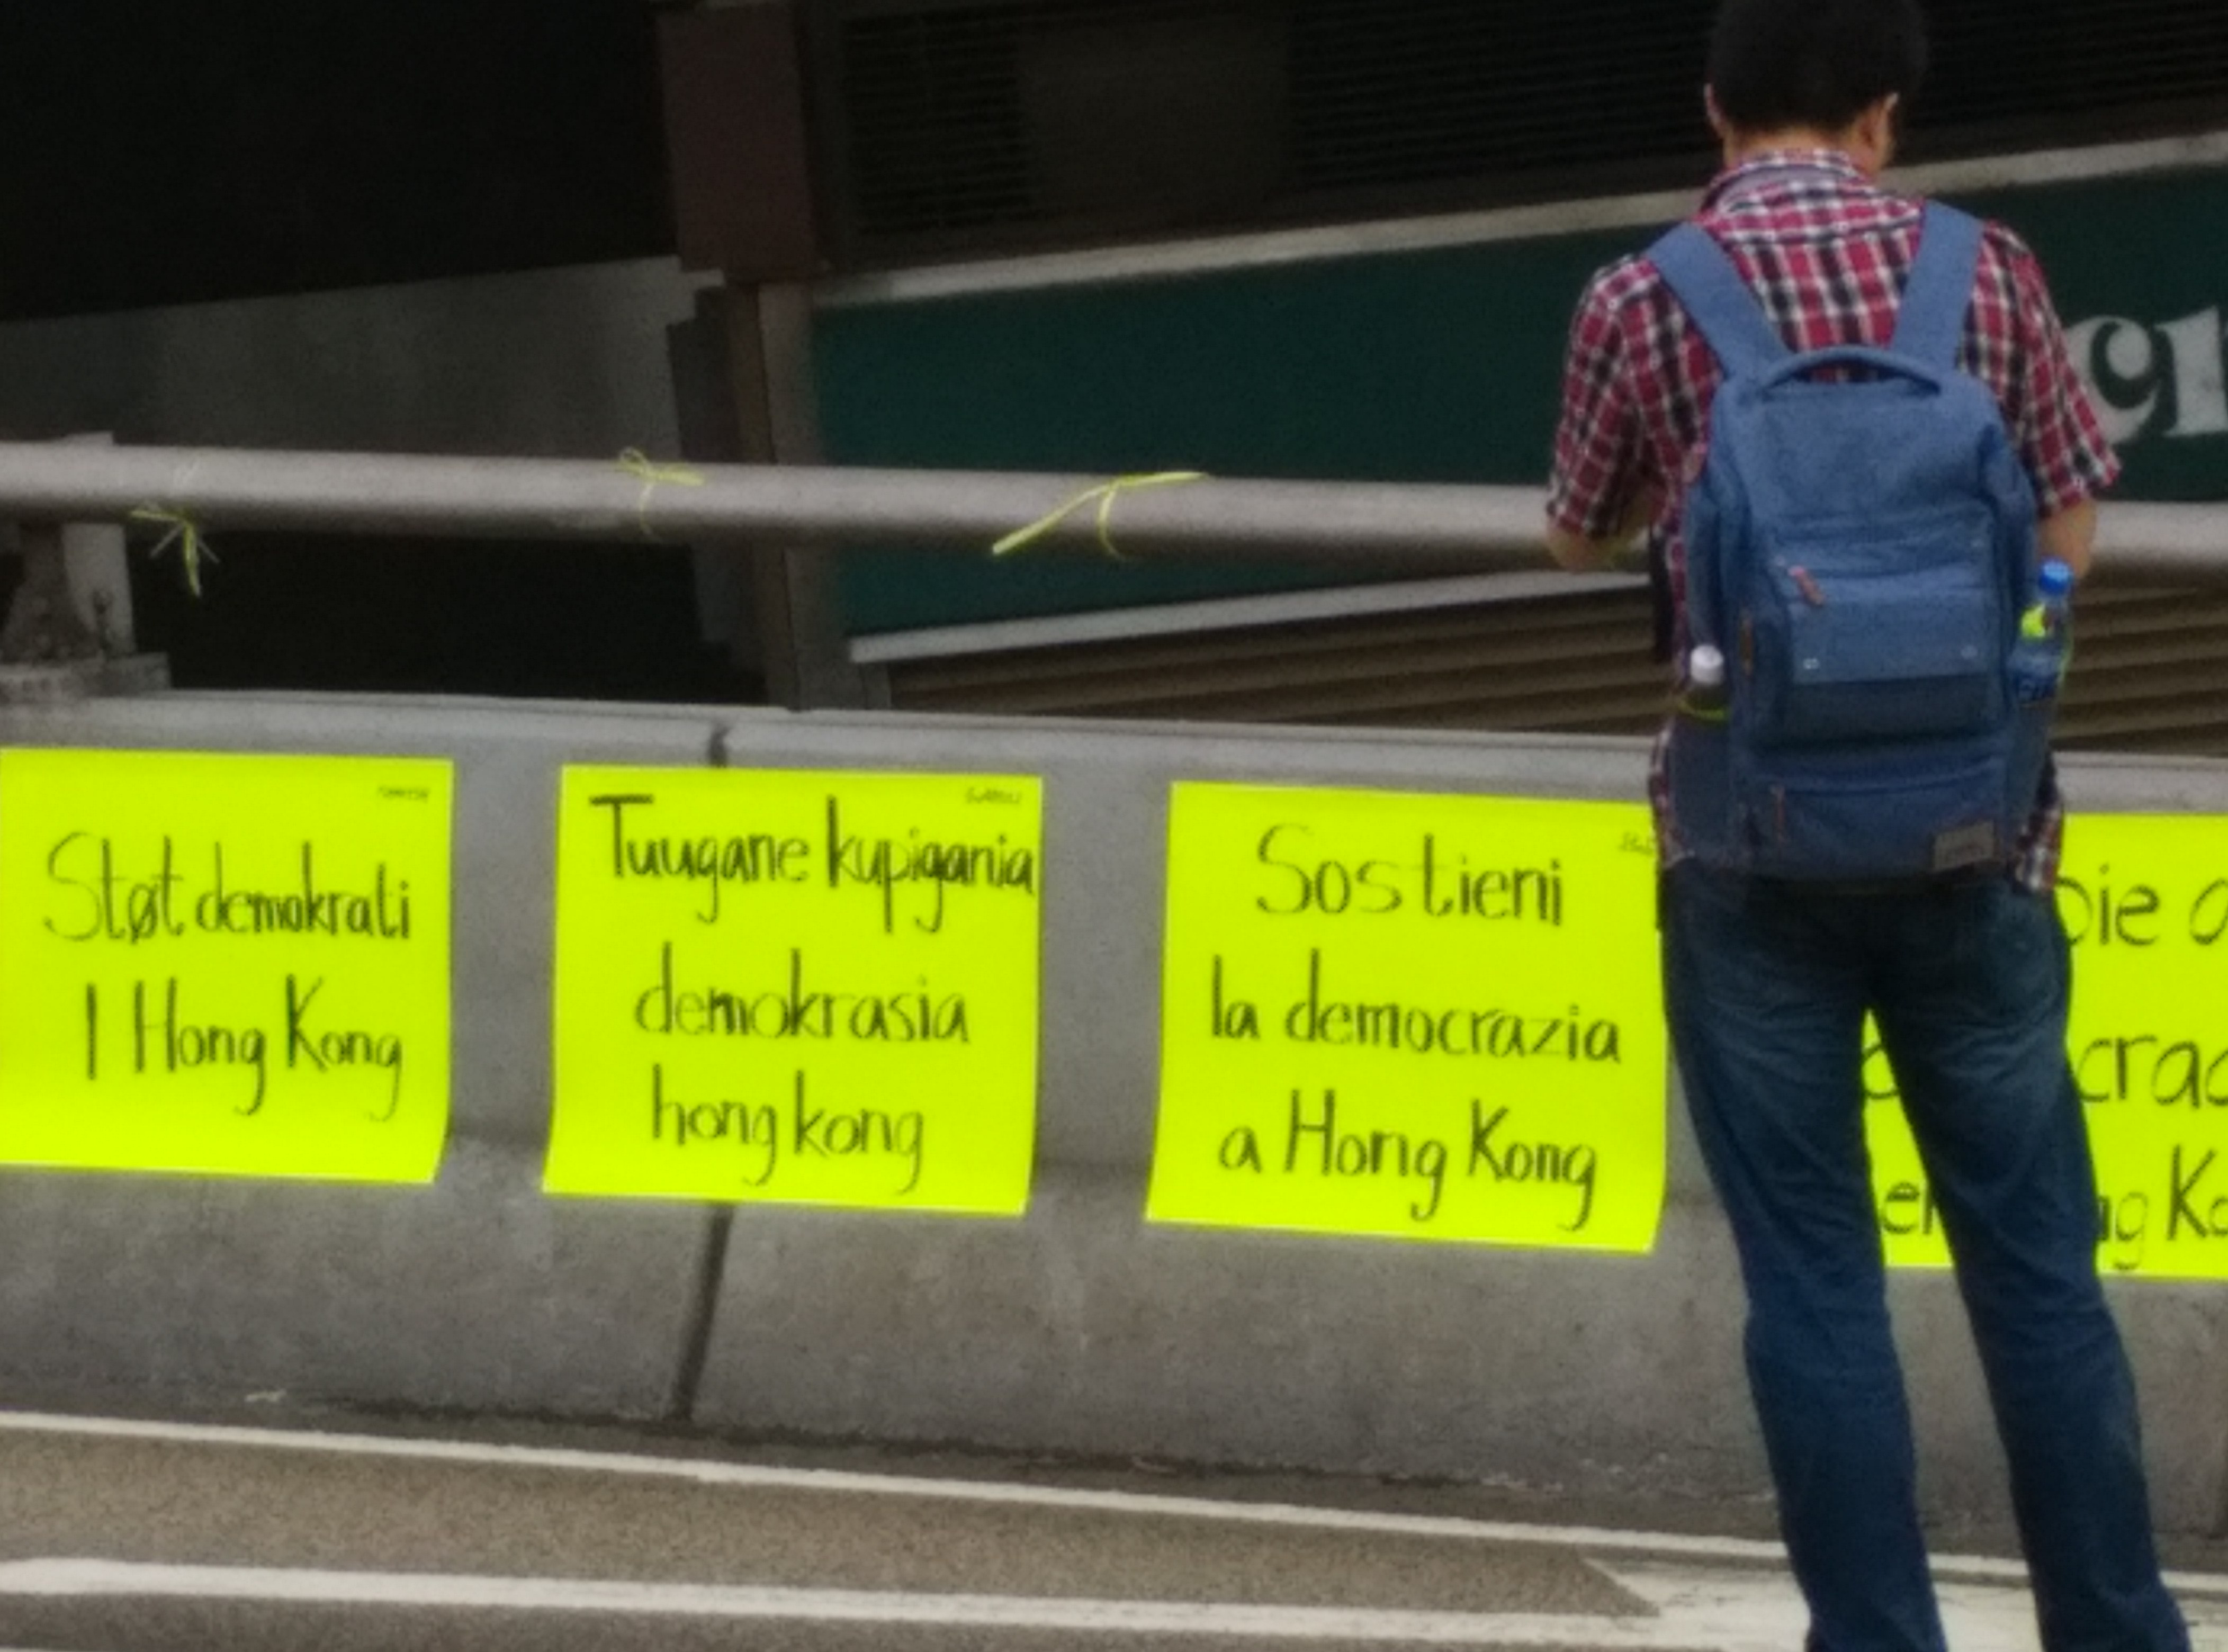 Støt demokrati
I Hong Kong
Tuugane kupigania
demokrasia
hong kong
Sostieni
la democrazia
a Hong Kong